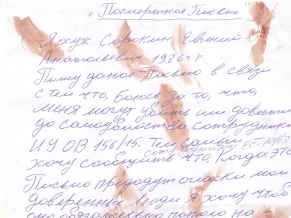 "Посмертное Письмо
Яхук Сорокин Евгений
Анатольевич 1986 г.р
Пишу данное Письмо в связи
с тем что, Боюсь за то, что,
меня могут убить или довести
до самоубийства сотрудники
ИУ ОВ 156/15. Тем самым
хочу сообщить что, Когда это
Письмо предадут огласки мои
доверенные люди я хочу чтоб
обязательно попало на